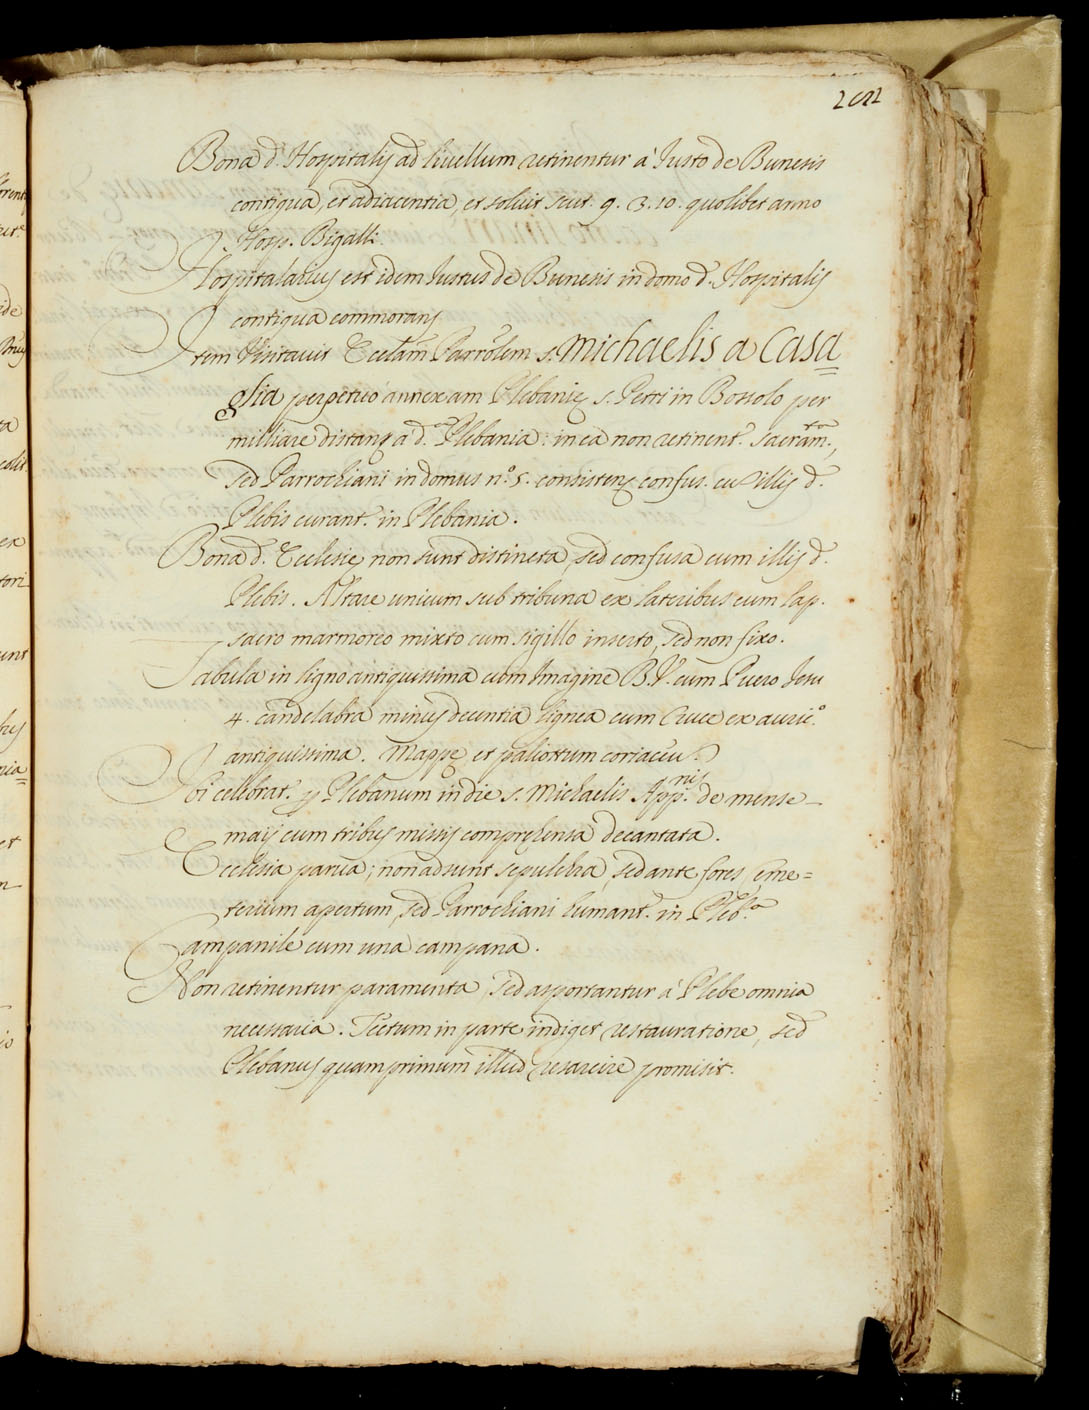 Bona d. Hospitalis ad livellum retinentur à Iusto de Bunesis
contiqua, et adiacentia, et solvit scut. 9. 3. 10. quolibet anno
Hosp. Bigalli.
Hospitalarius est idem Iustus de Bunesis in domo d. Hospitalis
contiqua commorans
Item Visitavit Ecclam Parrolem s. Michaelis a Casa=
glia perpetuo annexam Plebanię s. Petri in Bossolo per
milliare distans à d. Plebania: in ea non retinent. sacramta.,
sed Parrochiani in domus n.º 5. consistens confus. cu illis d.
Plebis curant. in Plebania.
Bona d. Ecclesię non sunt distincta, sed confusa cum illis d.
Plebis. Altare unicum sub tribuna ex lateribus cum lap.
sacro marmoreo mixto cum sigillo inserto, sed non fixo.
Tabula in ligno antiquissima cum Imagine B. V. cum Puero Iesu
4. candelabra minus decentia lignea cum Cruce ex auric.º
antiquissima. Mappę et paliottum coriaceu.
Ibi celebrat. p Plebanum in die s. Michaelis Appnis. de mense
maij cum tribus missis comprehensa decantata.
Ecclesia parva; non adsunt sepulchra, sed ante fores, ceme=
terium apertum, sed Parrochiani humant. in Pleb.a
Campanile cum una campana.
Non retinentur paramenta, sed asportantur à Plebe omnia
necessaria. Tectum in parte indiget restauratione, sed
Plebanus quamprimum illud resarcire promisit.